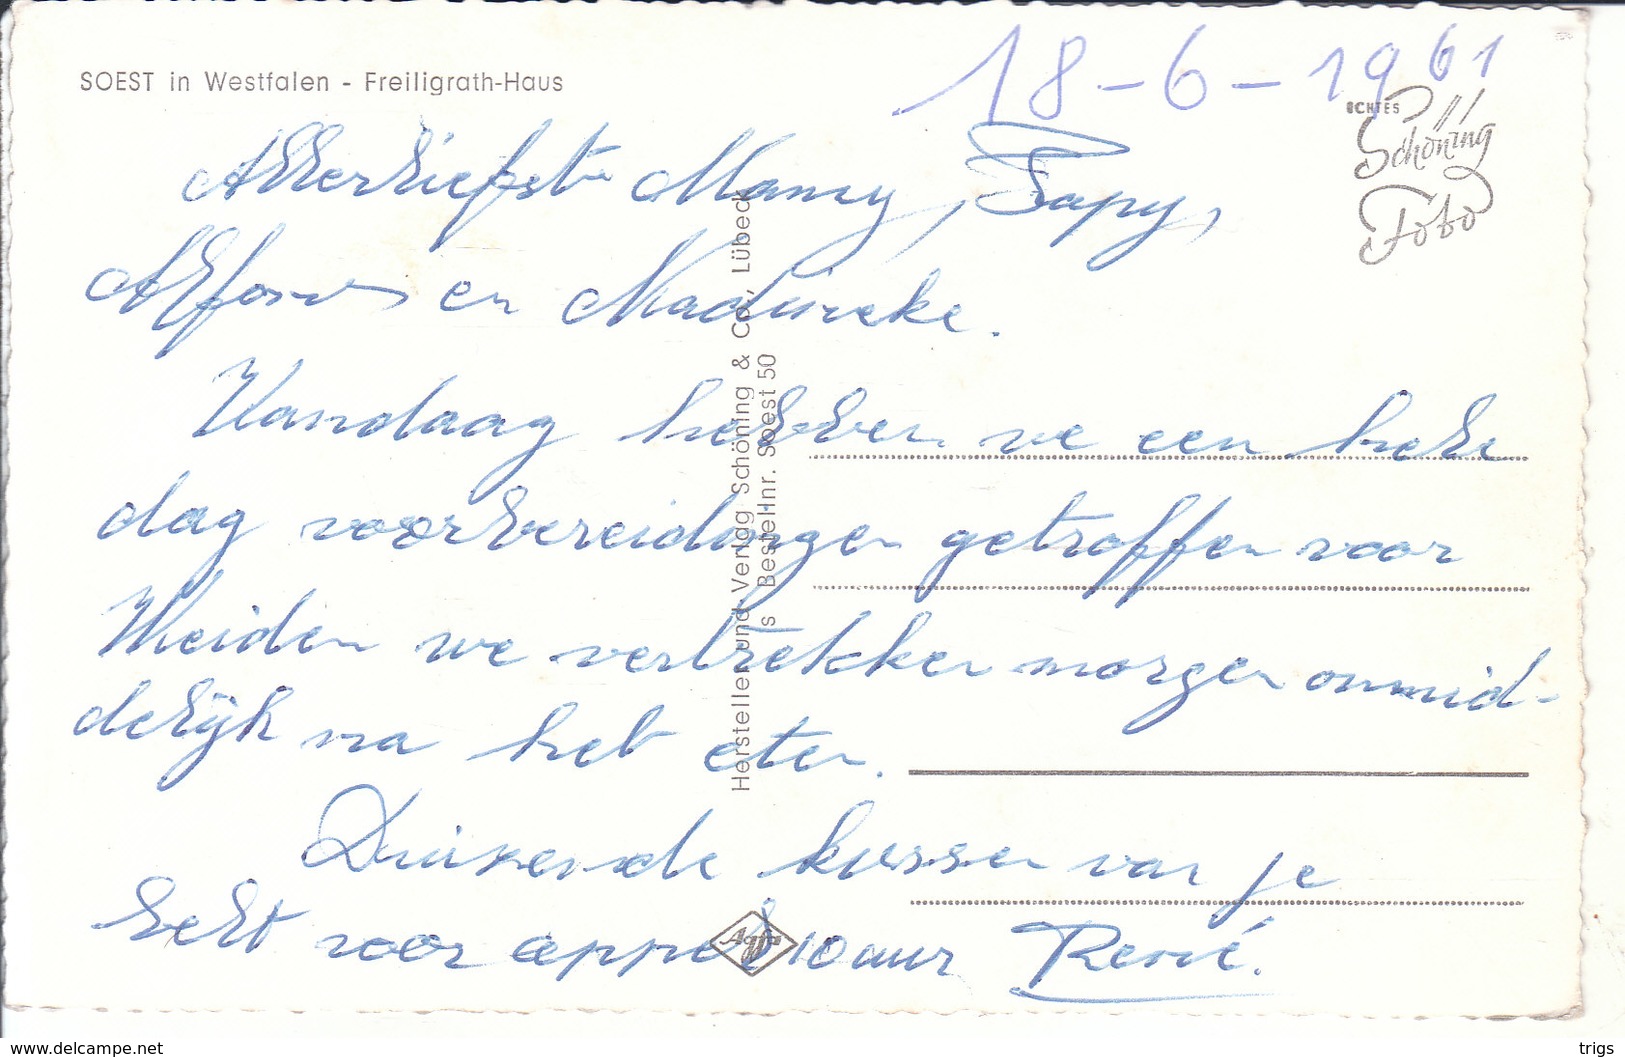 SOEST in Westfalen - Freiligrath-Haus
18-6-1961
ECHTES
Schöning
Foto
Allerliefste Mamy, Papy,
Alfons en Madeireke.
Vandaag hebben we een hele
dag voorbereidingen getroffen voor
Weiden we vertrekken morgen onmid-
delijk na het eten.
Duizende kussen van je
belt voor appel 10 uur René.
Hersteller und Verlag Schöning & Co., Lübeck
s Bestellnr. Soest 50
Agfa
www.delcampe.net
trigs